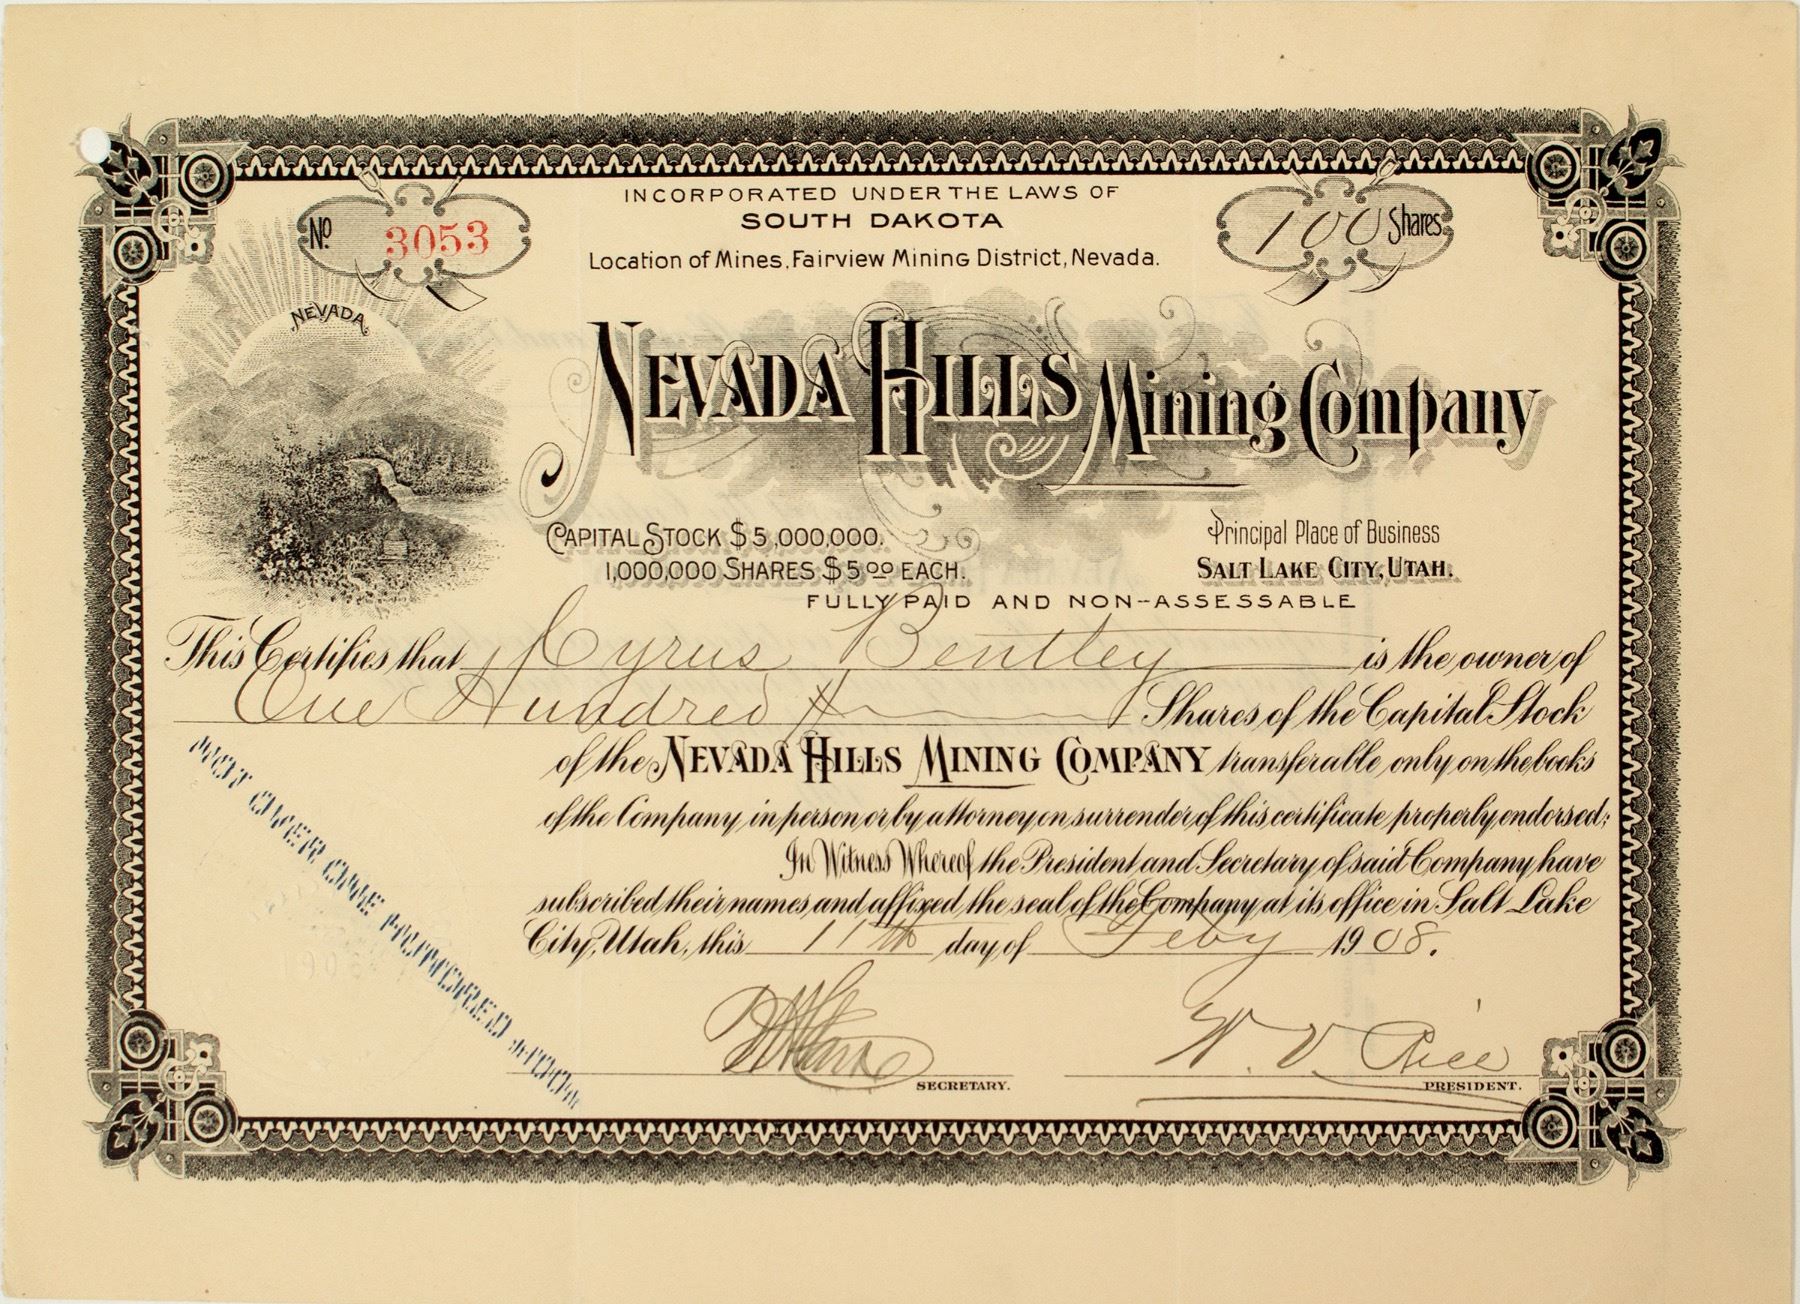 INCORPORATED UNDER THE LAWS OF
SOUTH DAKOTA
No 3053
100 Shares
Location of Mines, Fairview Mining District, Nevada.
NEVADA
NEVADA HILLS Mining Company
CAPITAL STOCK $5,000,000.
1,000,000 SHARES $5.00 EACH.
Principal Place of Business
SALT LAKE CITY, UTAH.
FULLY PAID AND NON-ASSESSABLE
This Certifies that Cyrus Bentley is the owner of
One Hundred Shares of the Capital Stock
of the NEVADA HILLS MINING COMPANY transferable only on the books
of the Company in person or by attorney on surrender of this certificate properly endorsed;
In Witness Whereof the President and Secretary of said Company have
subscribed their names and affixed the seal of the Company at its office in Salt Lake
City, Utah, this 11th day of Feby 1908.
NOT OVER ONE HUNDRED $100$
W. V. Rice
SECRETARY.
PRESIDENT.